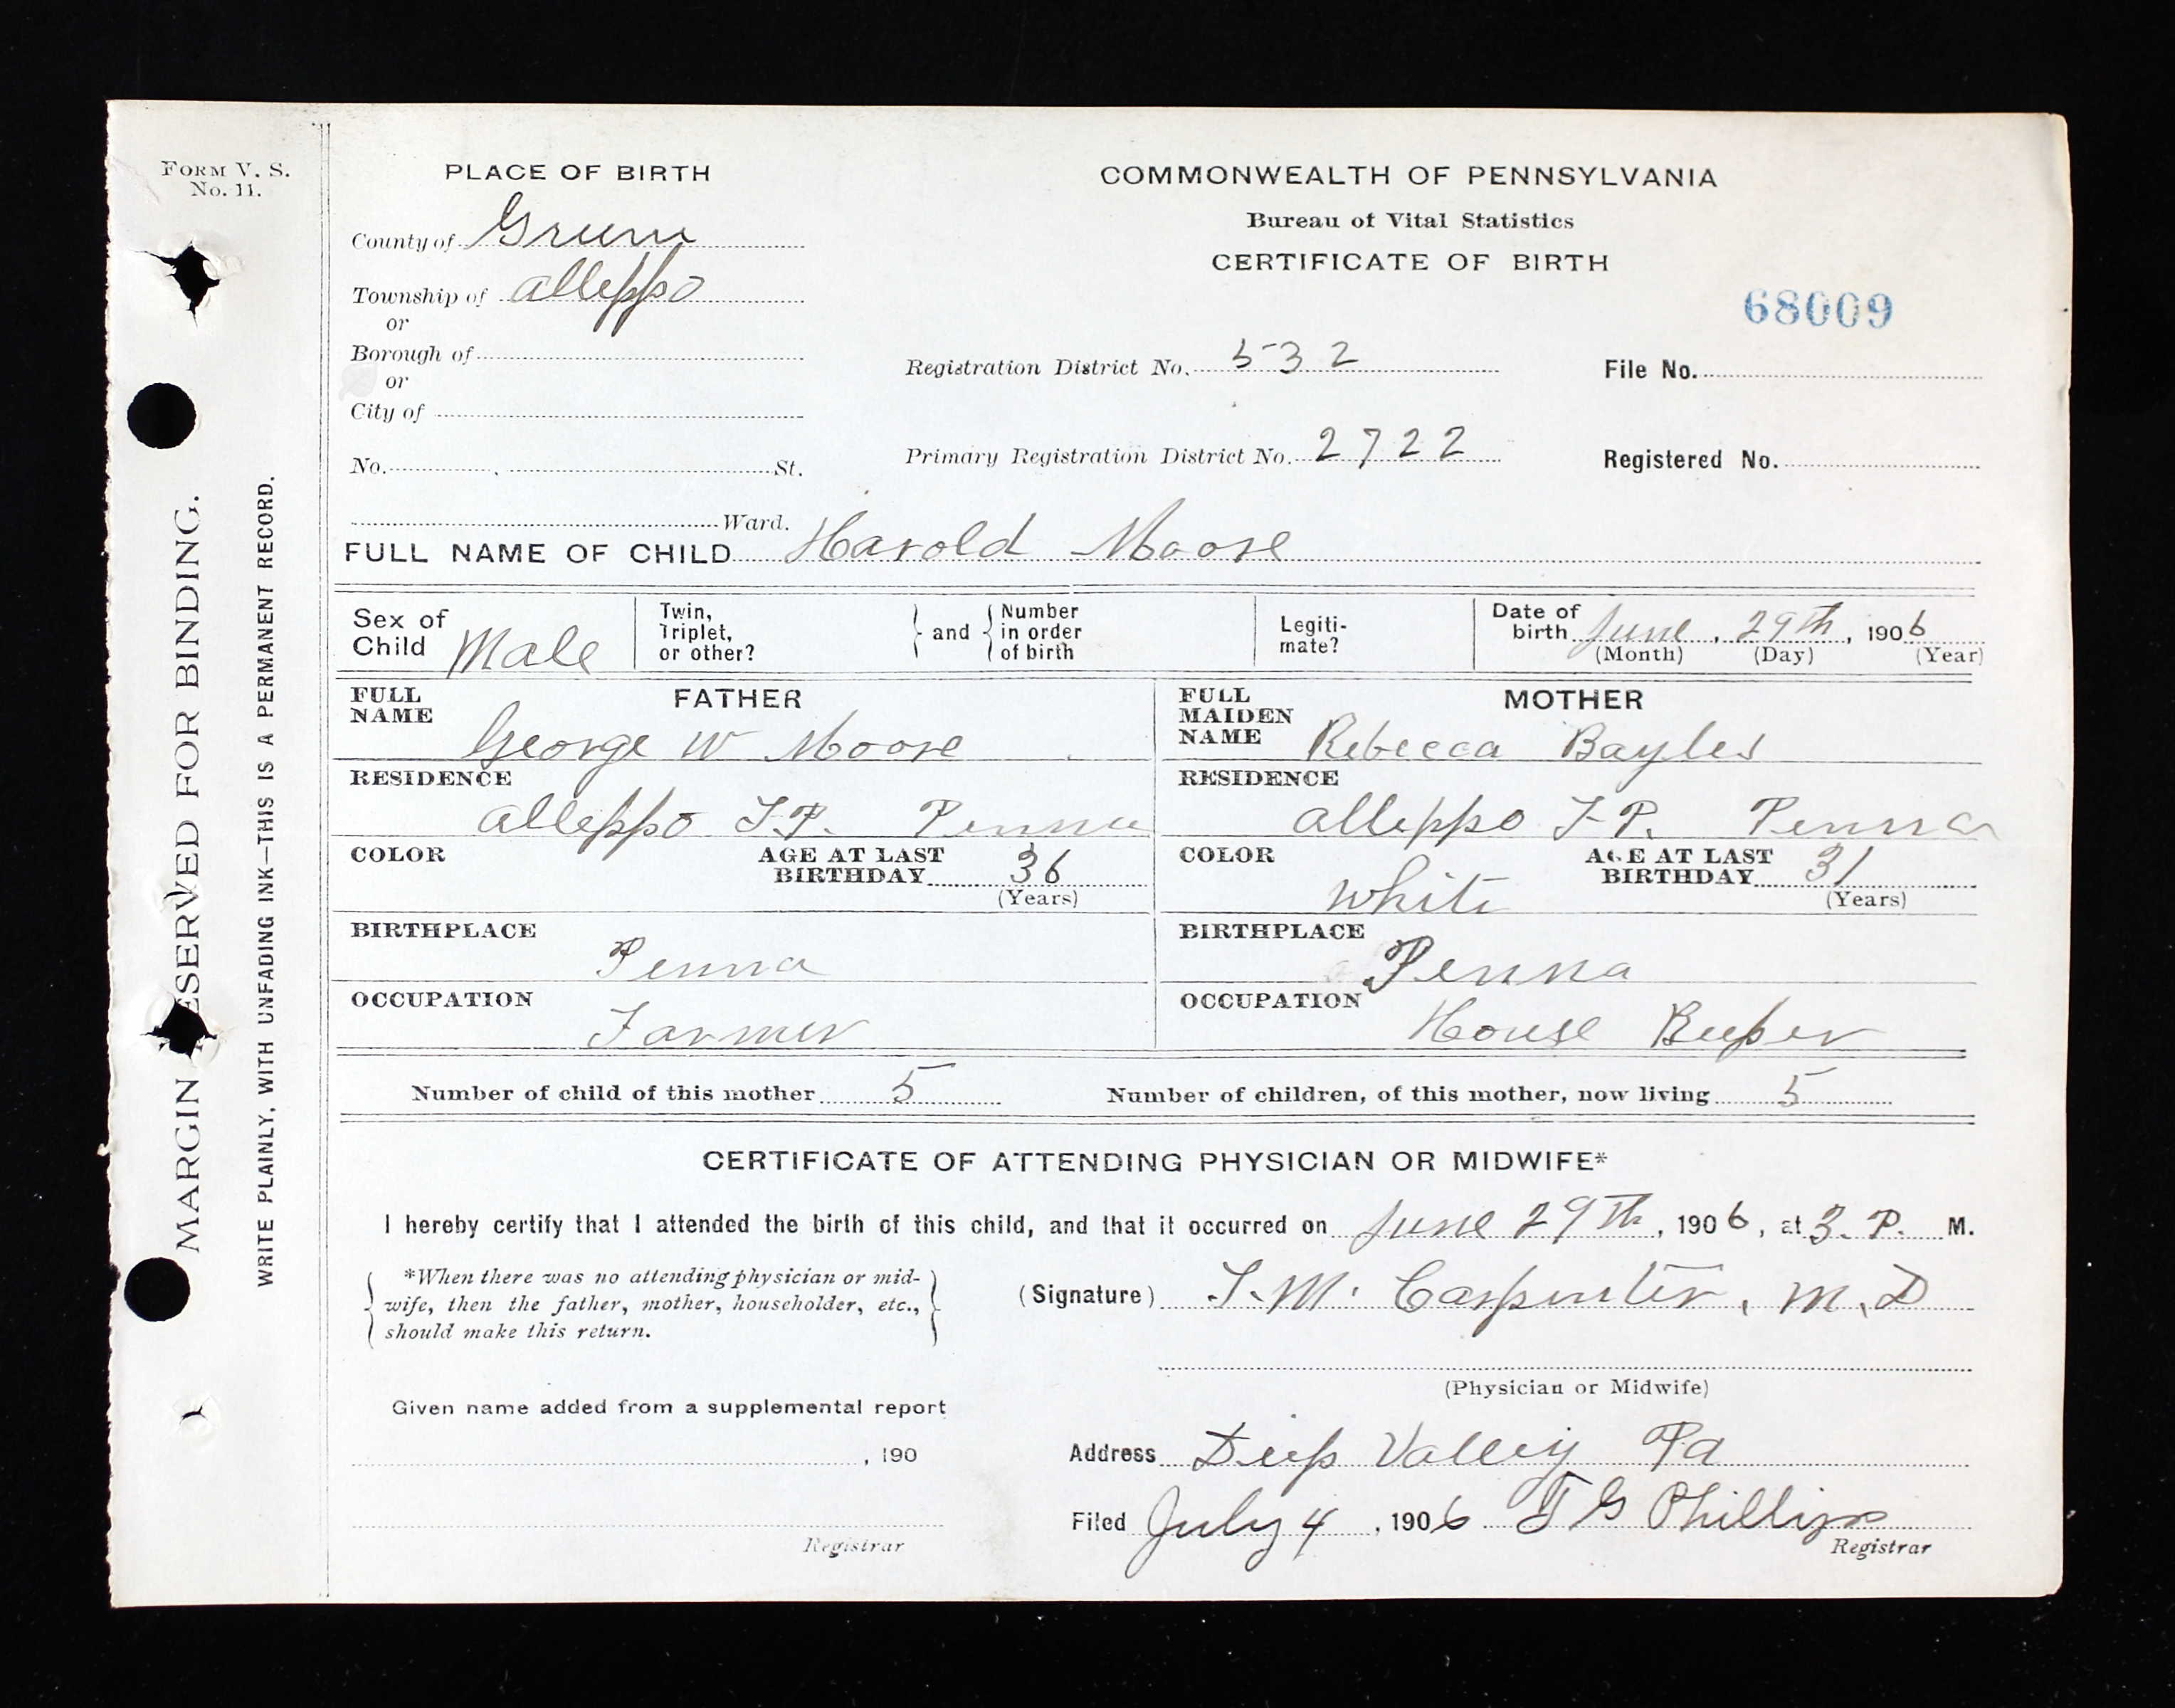 FORM V. S.
No. 11.
MARGIN RESERVED FOR BINDING.
WRITE PLAINLY, WITH UNFADING INK—THIS IS A PERMANENT RECORD.
PLACE OF BIRTH
County of Greene
Township of Alleppo
or
Borough of
or
City of
No. , St.
Ward.
COMMONWEALTH OF PENNSYLVANIA
Bureau of Vital Statistics
CERTIFICATE OF BIRTH
68009
Registration District No. 532
File No.
Primary Registration District No. 2722
Registered No.
FULL NAME OF CHILD Harold Moore
Sex of Child Male
Twin, Triplet, or other?
and
Number in order of birth
Legiti-mate?
Date of birth June, 29th, 1906
(Month) (Day) (Year)
FATHER
FULL NAME George W Moore
RESIDENCE
Alleppo T.P. Penna
COLOR
AGE AT LAST BIRTHDAY 36
(Years)
BIRTHPLACE
Penna
OCCUPATION
Farmer
MOTHER
FULL MAIDEN NAME Rebecca Bayles
RESIDENCE
Alleppo T.P. Penna
COLOR White
AGE AT LAST BIRTHDAY 31
(Years)
BIRTHPLACE
Penna
OCCUPATION
House Keeper
Number of child of this mother 5
Number of children, of this mother, now living 5
CERTIFICATE OF ATTENDING PHYSICIAN OR MIDWIFE*
I hereby certify that I attended the birth of this child, and that it occurred on June 29th, 1906, at 3. P. M.
*When there was no attending physician or mid-
wife, then the father, mother, householder, etc.,
should make this return.
(Signature) T. M. Carpenter, M. D
(Physician or Midwife)
Given name added from a supplemental report
, 190
Registrar
Address Deep Valley Pa
Filed July 4, 1906 T G Phillips
Registrar